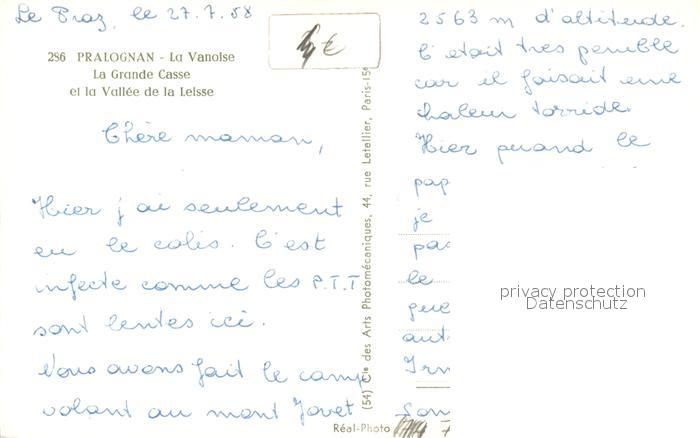 Le Praz, le 27.7.58
4 €
286 PRALOGNAN - La Vanoise
La Grande Casse
et la Vallée de la Leisse
Chère maman,
Hier j'ai seulement
eu le colis. C'est
infecte comme les P.T.T
sont lentes ici.
Nous avons fait le camp
volant au mont Jovet
(54) Cie des Arts Photomécaniques, 44, rue Letellier, Paris-15e
Réal-Photo
2563 m d'altitude.
C'était très penible
car il faisait une
chaleur torride.
Hier quand le
pap
je
pas
le
que
aut
Irm
privacy protection
Datenschutz